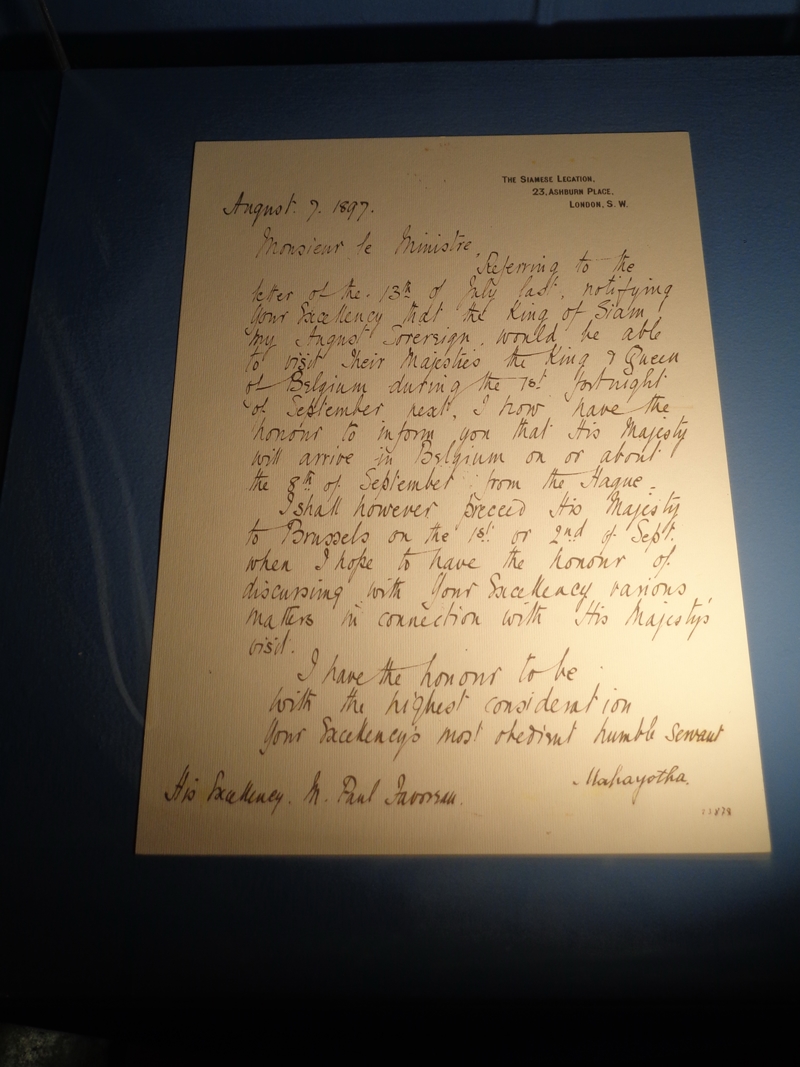 THE SIAMESE LEGATION,
23, ASHBURN PLACE,
LONDON, S. W.
August. 7. 1897.
Monsieur le Ministre,
Referring to the
letter of the 13th of July last, notifying
Your Excellency that the King of Siam
my August Sovereign, would be able
to visit Their Majesties the King & Queen
of Belgium during the 1st fortnight
of September next, I now have the
honour to inform you that His Majesty
will arrive in Belgium on or about
the 8th of September from the Hague.
I shall however preceed His Majesty
to Brussels on the 1st or 2nd of Sept.
when I hope to have the honour of
discussing with Your Excellency various
matters in connection with His Majesty's
visit.
I have the honour to be
with the highest consideration
Your Excellency's most obedient humble Servant
Mahayotha.
His Excellency. M. Paul Favereau.